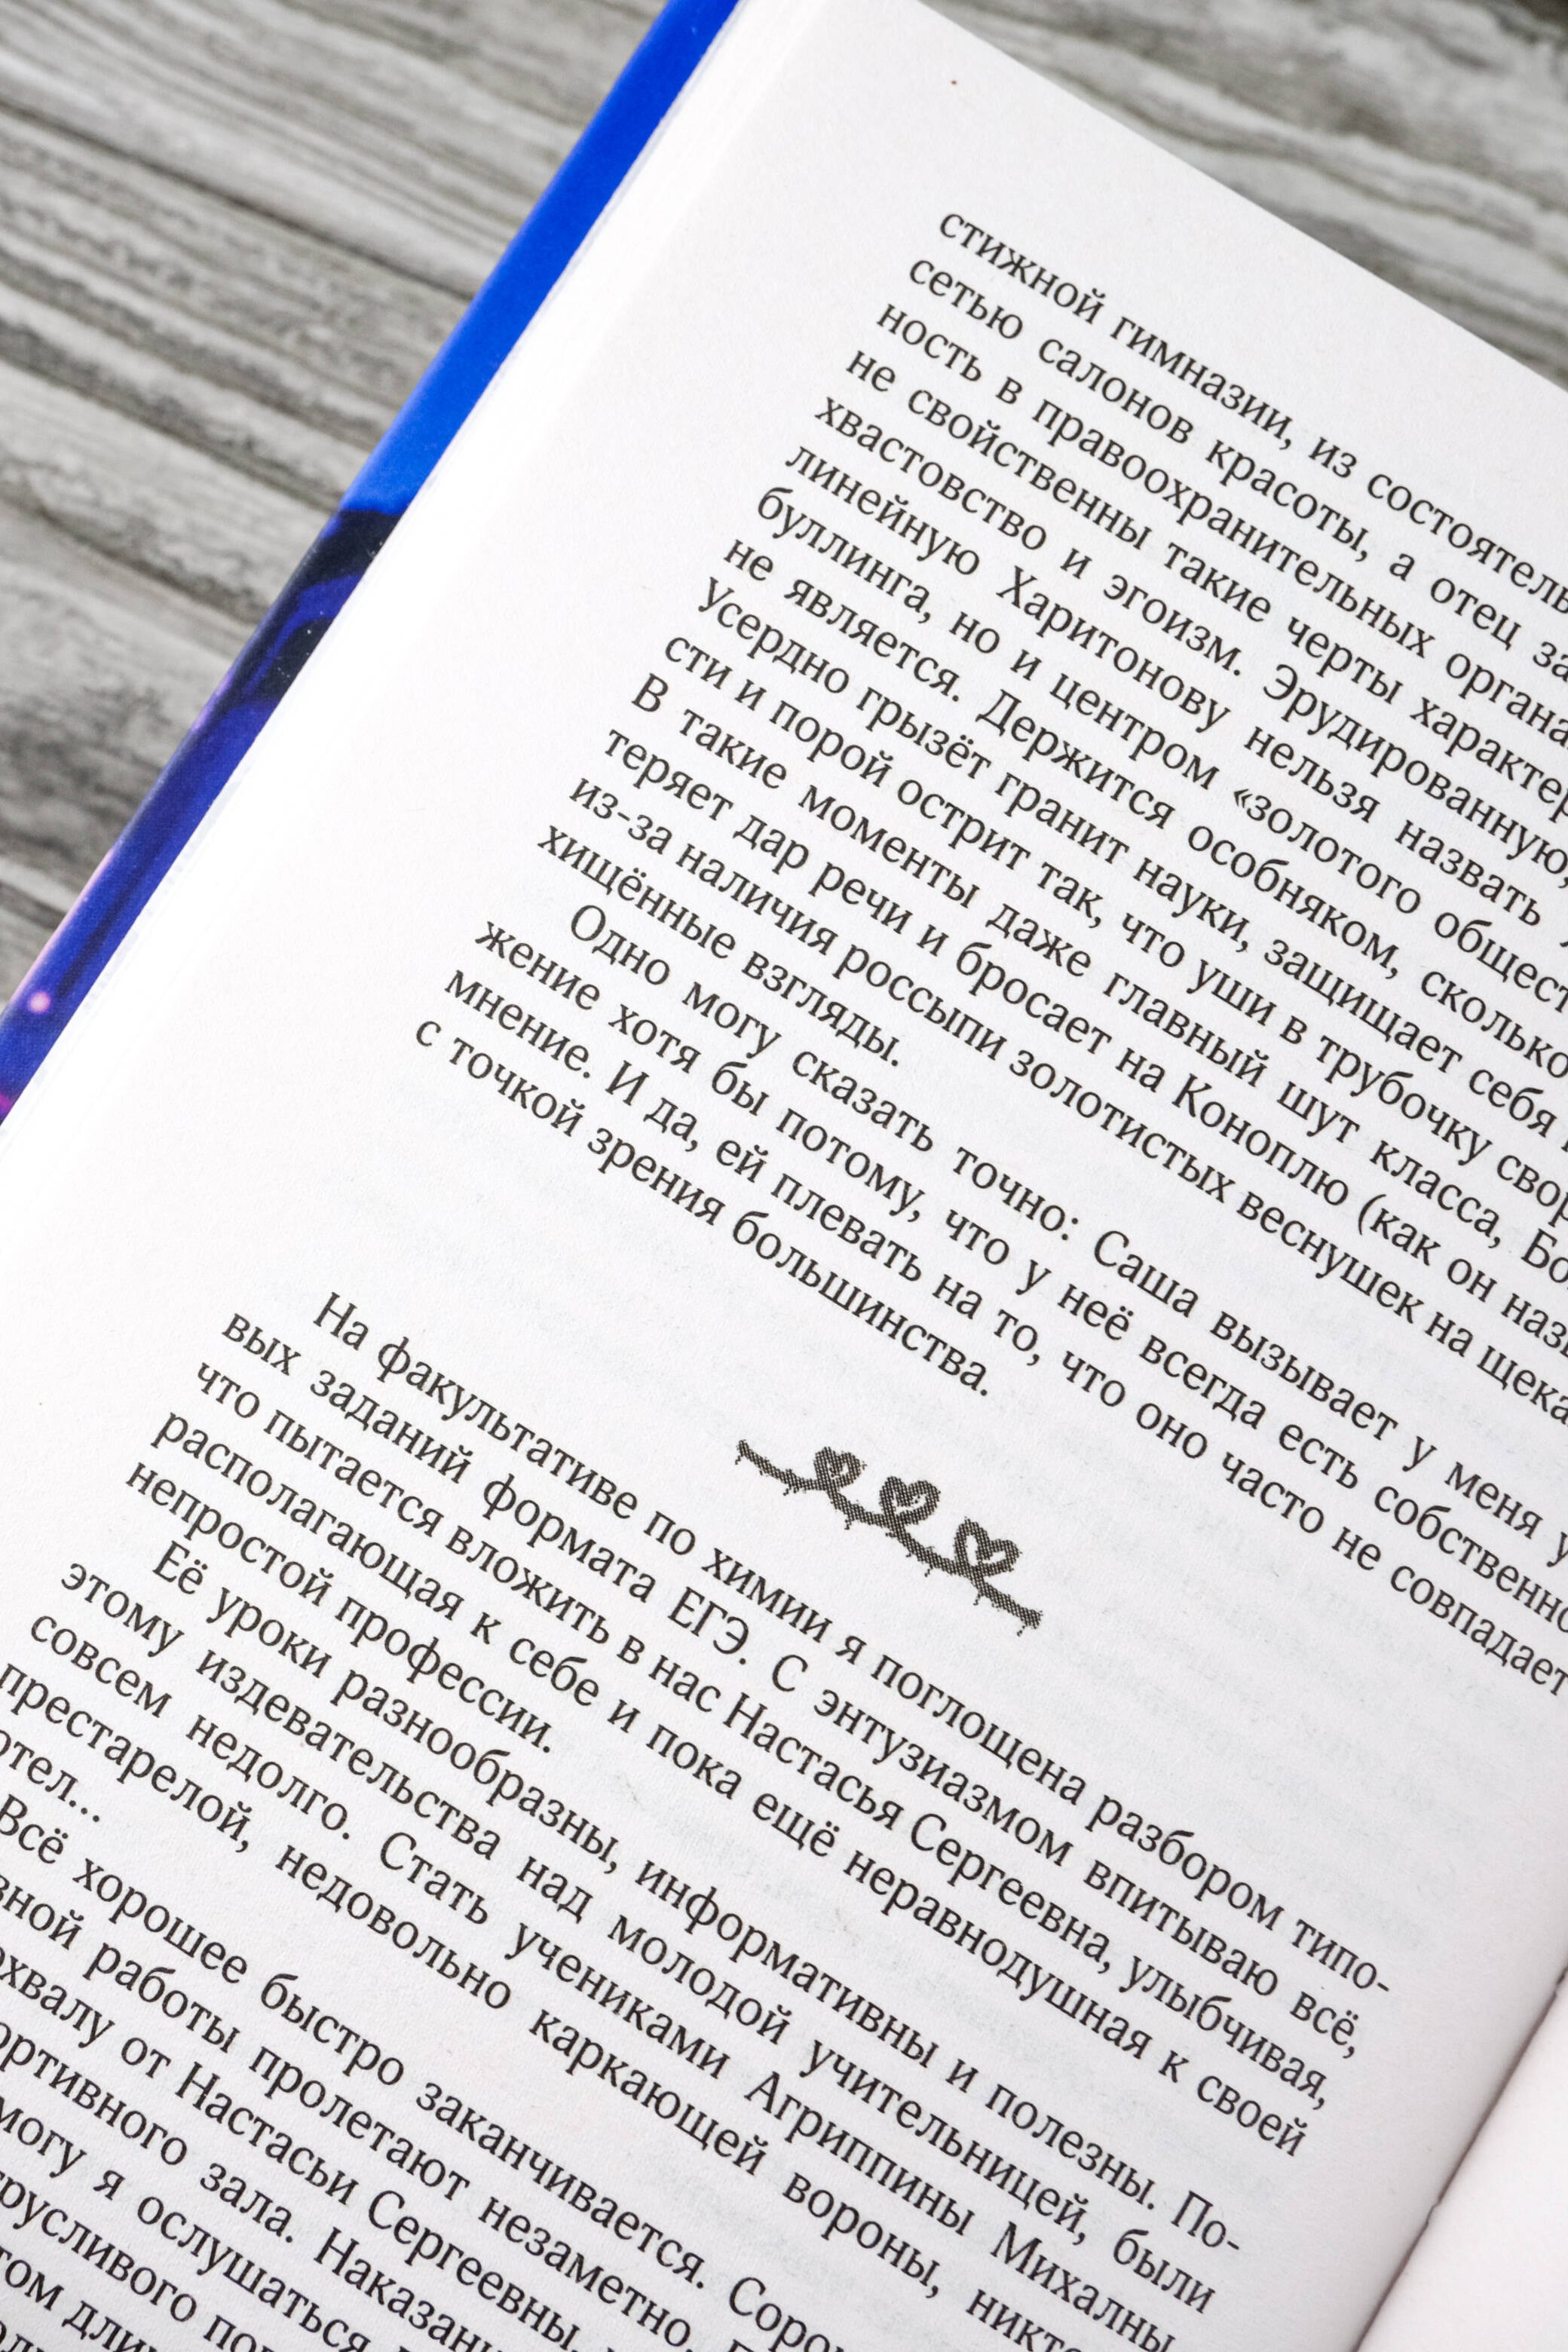 стижной гимназии, из состоятель
сетью салонов красоты, а отец за
ность в правоохранительных органа
не свойственны такие черты характер
хвастовство и эгоизм. Эрудированную,
линейную Харитонову нельзя назвать
буллинга, но и центром «золотого общест
не является. Держится особняком, сколько
Усердно грызёт гранит науки, защищает себя
сти и порой острит так, что уши в трубочку свор
В такие моменты даже главный шут класса, Бо
теряет дар речи и бросает на Коноплю (как он назы
из-за наличия россыпи золотистых веснушек на щека
хищённые взгляды.
Одно могу сказать точно: Саша вызывает у меня у
жение хотя бы потому, что у неё всегда есть собственно
мнение. И да, ей плевать на то, что оно часто не совпадает
с точкой зрения большинства.
На факультативе по химии я поглощена разбором типо-
вых заданий формата ЕГЭ. С энтузиазмом впитываю всё,
что пытается вложить в нас Настасья Сергеевна, улыбчивая,
располагающая к себе и пока ещё неравнодушная к своей
непростой профессии.
Её уроки разнообразны, информативны и полезны. По-
этому издевательства над молодой учительницей, были
совсем недолго. Стать учениками Агриппины Михалны
престарелой, недовольно каркающей вороны, никто
отел...
Всё хорошее быстро заканчивается. Сорок
вной работы пролетают незаметно.
охвалу от Настасьи Сергеевны,
ортивного зала. Наказани
могу я ослушаться
русливого по
том дли